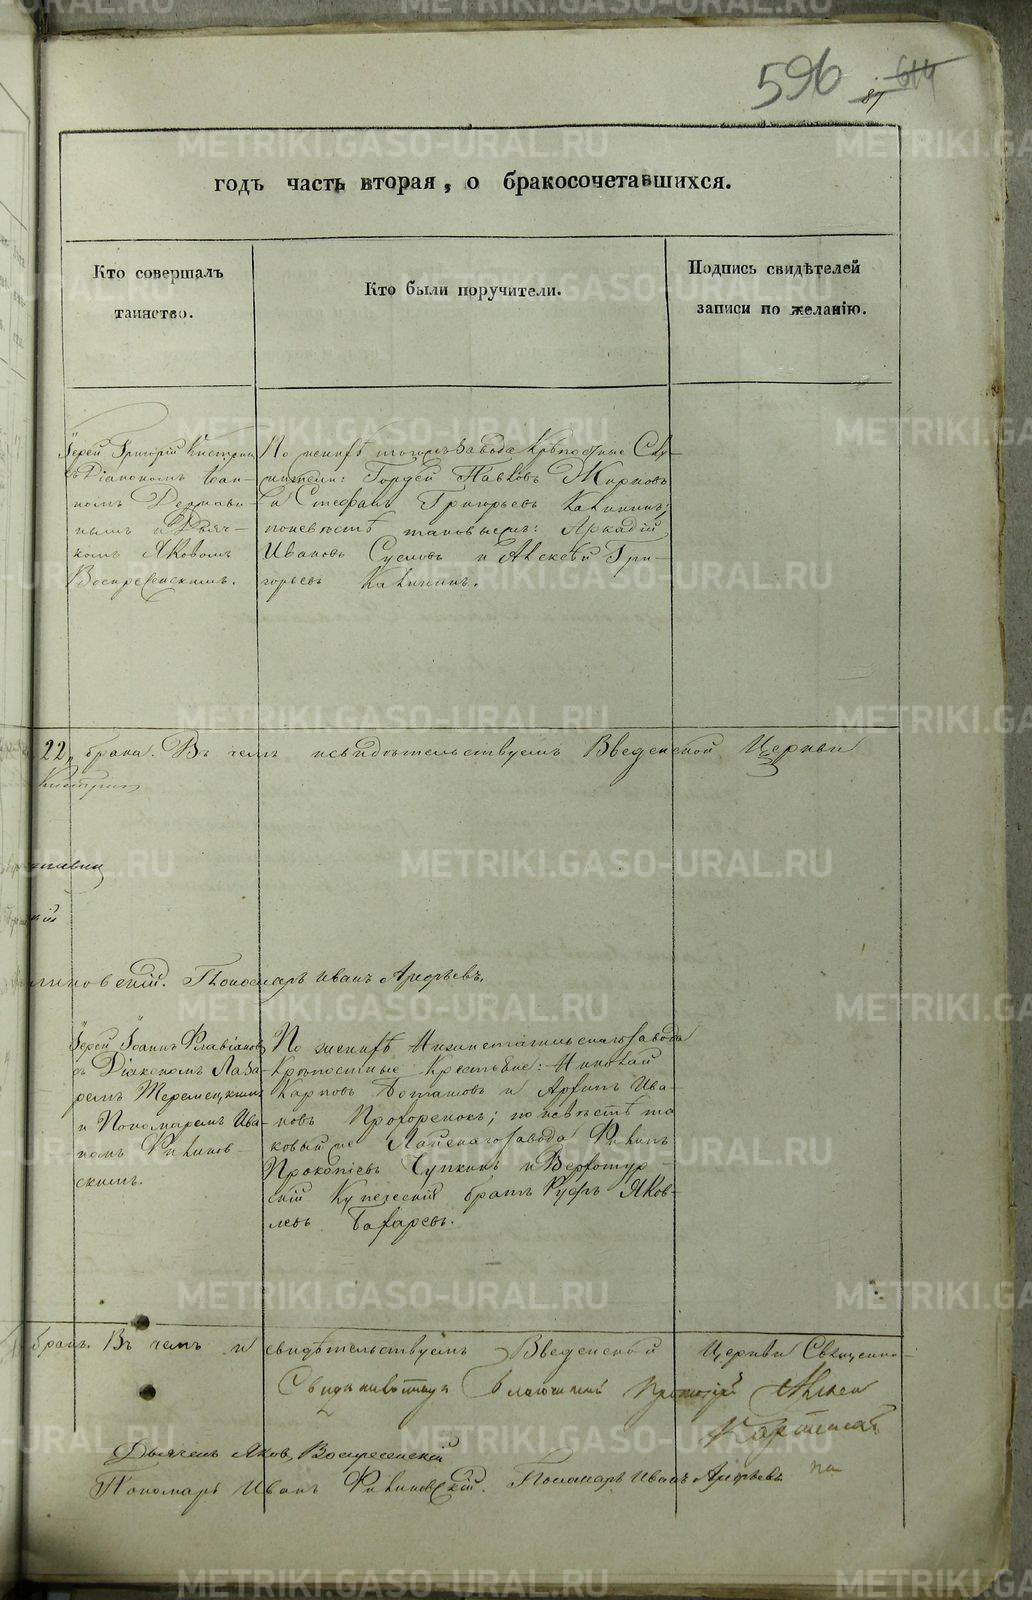 METRIKI.GASO-URAL.RU
596
87 614
годъ часть вторая, о бракосочетавшихся.
Кто совершалъ
таинство.
Кто были поручители.
Подпись свидѣтелей
записи по желанію.
Іерей Григорій Кистрин
съ Діакономъ Іоан-
номъ
нымъ и Дьяч-
комъ Яковомъ
Воскресенскимъ.
По женихѣ тогожъ завода Крѣпостные Слу-
жители: Гордей Павловъ Жирновъ
и Стефанъ Григорьевъ Калининъ;
по невѣстѣ таковыежъ: Аркадій
Ивановъ Сусловъ и Алексѣй Гри-
горьевъ Калининъ.
22, брака. Въ чемъ и свидѣтельствуемъ Введенской Церкви
Кистрин
ній
новскій. Пономарь Иванъ Арефьевъ.
Іерей Іоаннъ Флавіановъ
съ Діакономъ Лаза-
ремъ Теремецкимъ
и Пономаремъ Ива-
номъ Филинов-
скимъ.
По женихѣ Нижнетагильскаго завода
Крѣпостные Крестьяне: Николай
Карповъ Боташовъ и Архипъ Ива-
новъ Прохоренокъ; по невѣстѣ та
ковый же Лайскаго завода Филипъ
Прокопіевъ Чупкинъ и Верхотур-
скій Купеческій братъ Руфъ Яков-
левъ
бракъ. Въ чемъ и свидѣтельствуемъ Введенской Церкви Священно-
Благочинный Протоіерей
Дьячекъ Яковъ Воскресенскій
Пономарь Иванъ Филиновскій. Пономарь Иванъ Арефьевъ